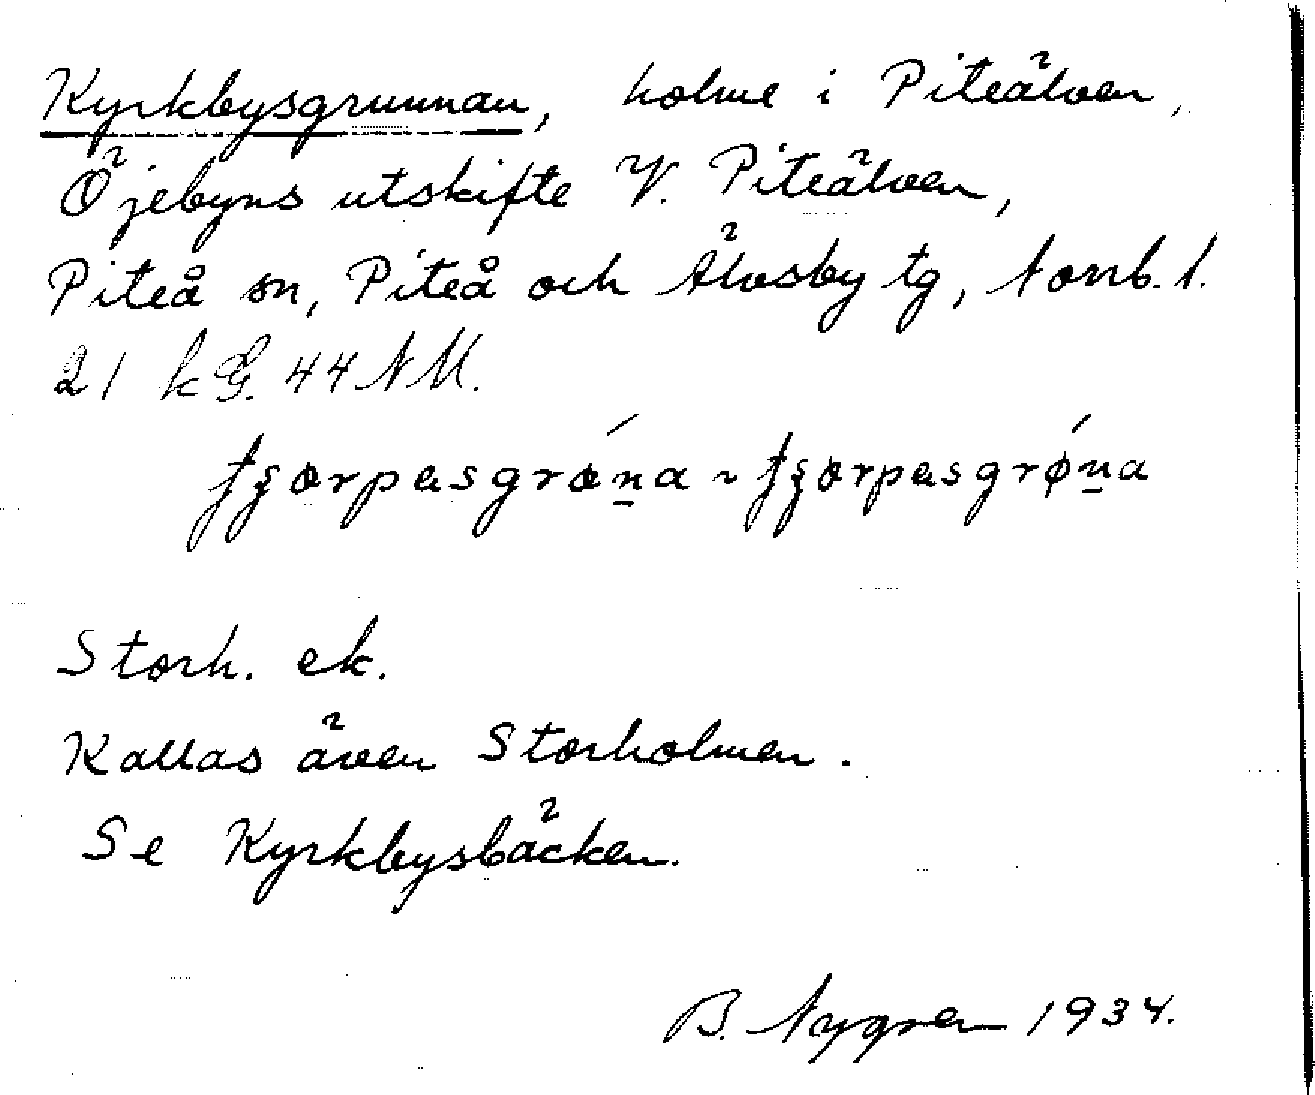 Kyrkbysgrunnan, holme i Piteälven,
Öjebyns utskifte V. Piteälven,
Piteå sn, Piteå och Älvsby tg, Norrb. l.
21 k G. 44 NM.
Storh. ek.
Kallas även Storholmen.
Se Kyrkbysbäcken.
B. Nygren 1934.